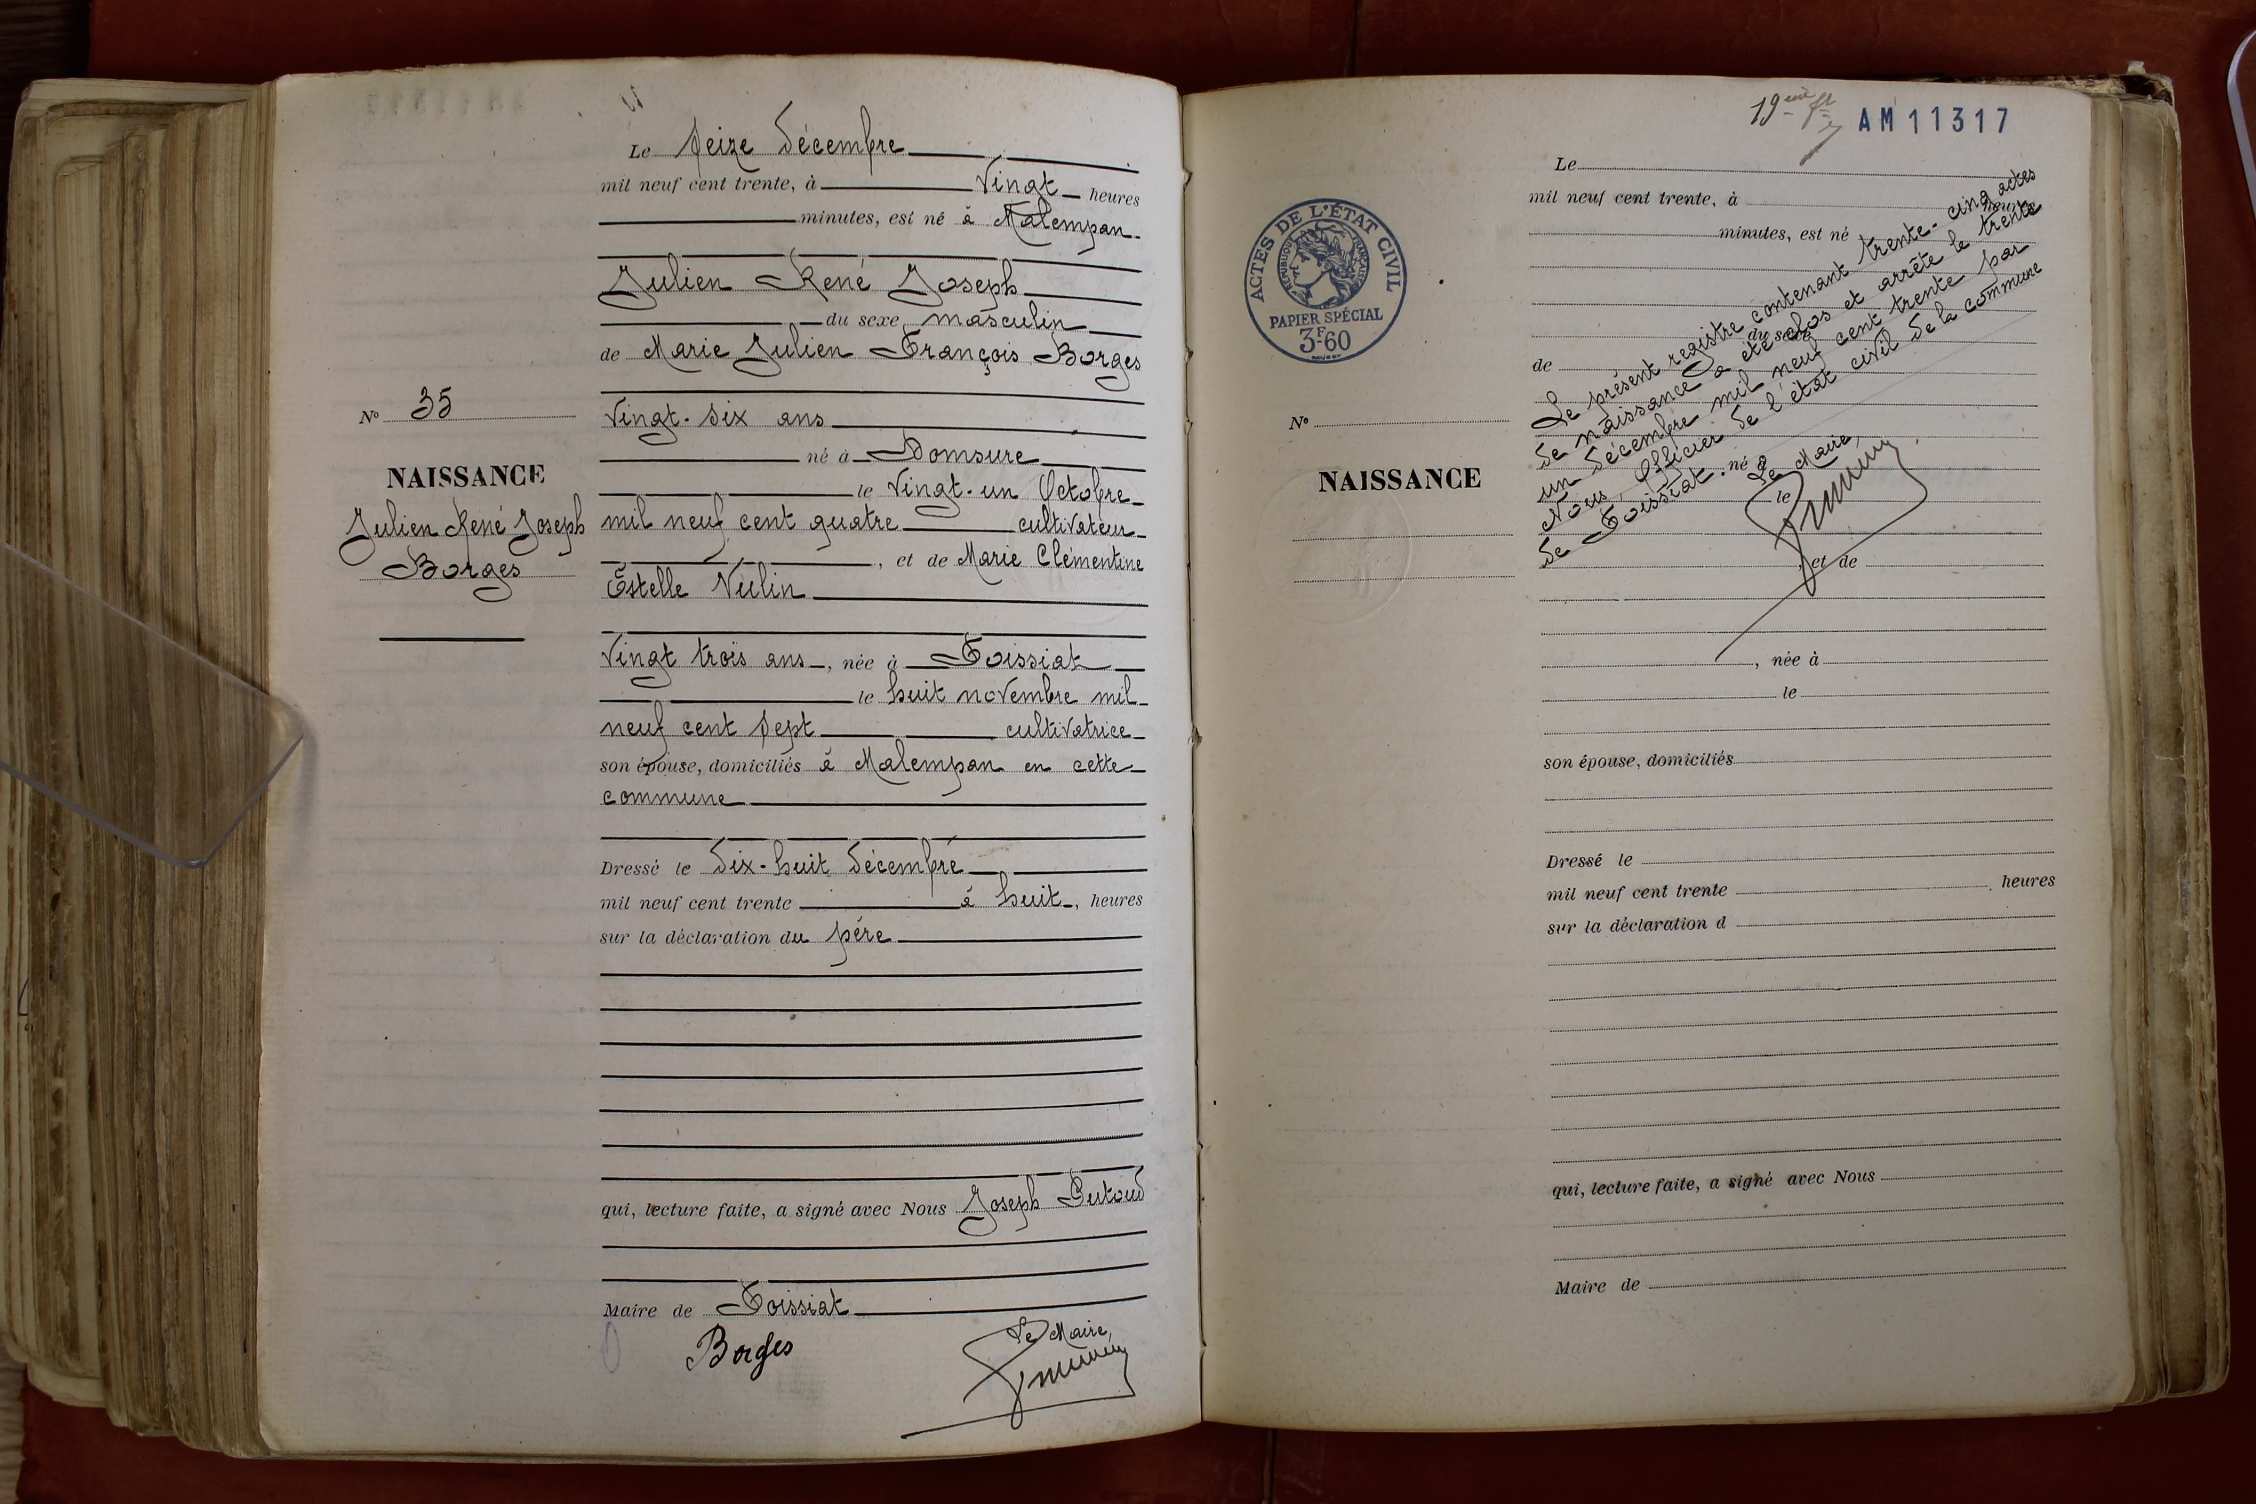 Le Seize décembre
mil neuf cent trente, à Vingt heures
minutes, est né à Malempan
Julien René Joseph
du sexe masculin
de Marie Julien François Borges
Vingt-six ans
né à Domsure
le Vingt-un Octobre
mil neuf cent quatre cultivateur
, et de Marie Clémentine
Estelle Vulin
Vingt trois ans, née à Foissiat
le huit novembre mil
neuf cent sept cultivatrice
son épouse, domiciliés à Malempan en cette
commune
Dressé le dix-huit décembre
mil neuf cent trente à huit, heures
sur la déclaration du père
qui, lecture faite, a signé avec Nous Joseph
Maire de Foissiat
Borges
Le Maire,
No 35
NAISSANCE
Julien René Joseph
Borges
19
AM11317
ACTES DE L'ÉTAT CIVIL
RÉPUBLIQUE FRANÇAISE
PAPIER SPÉCIAL
3F.60
No
NAISSANCE
Le
mil neuf cent trente, à heures
minutes, est né
du sexe
de
né à
le
, et de
, née à
le
son épouse, domiciliés
Dressé le
mil neuf cent trente heures
sur la déclaration d
qui, lecture faite, a signé avec Nous
Maire de
Le présent registre contenant trente-cinq actes
de naissance a été clos et arrêté le trente
un décembre mil neuf cent trente par
Nous, Officier de l'état civil de la commune
de Foissiat.
Le Maire,